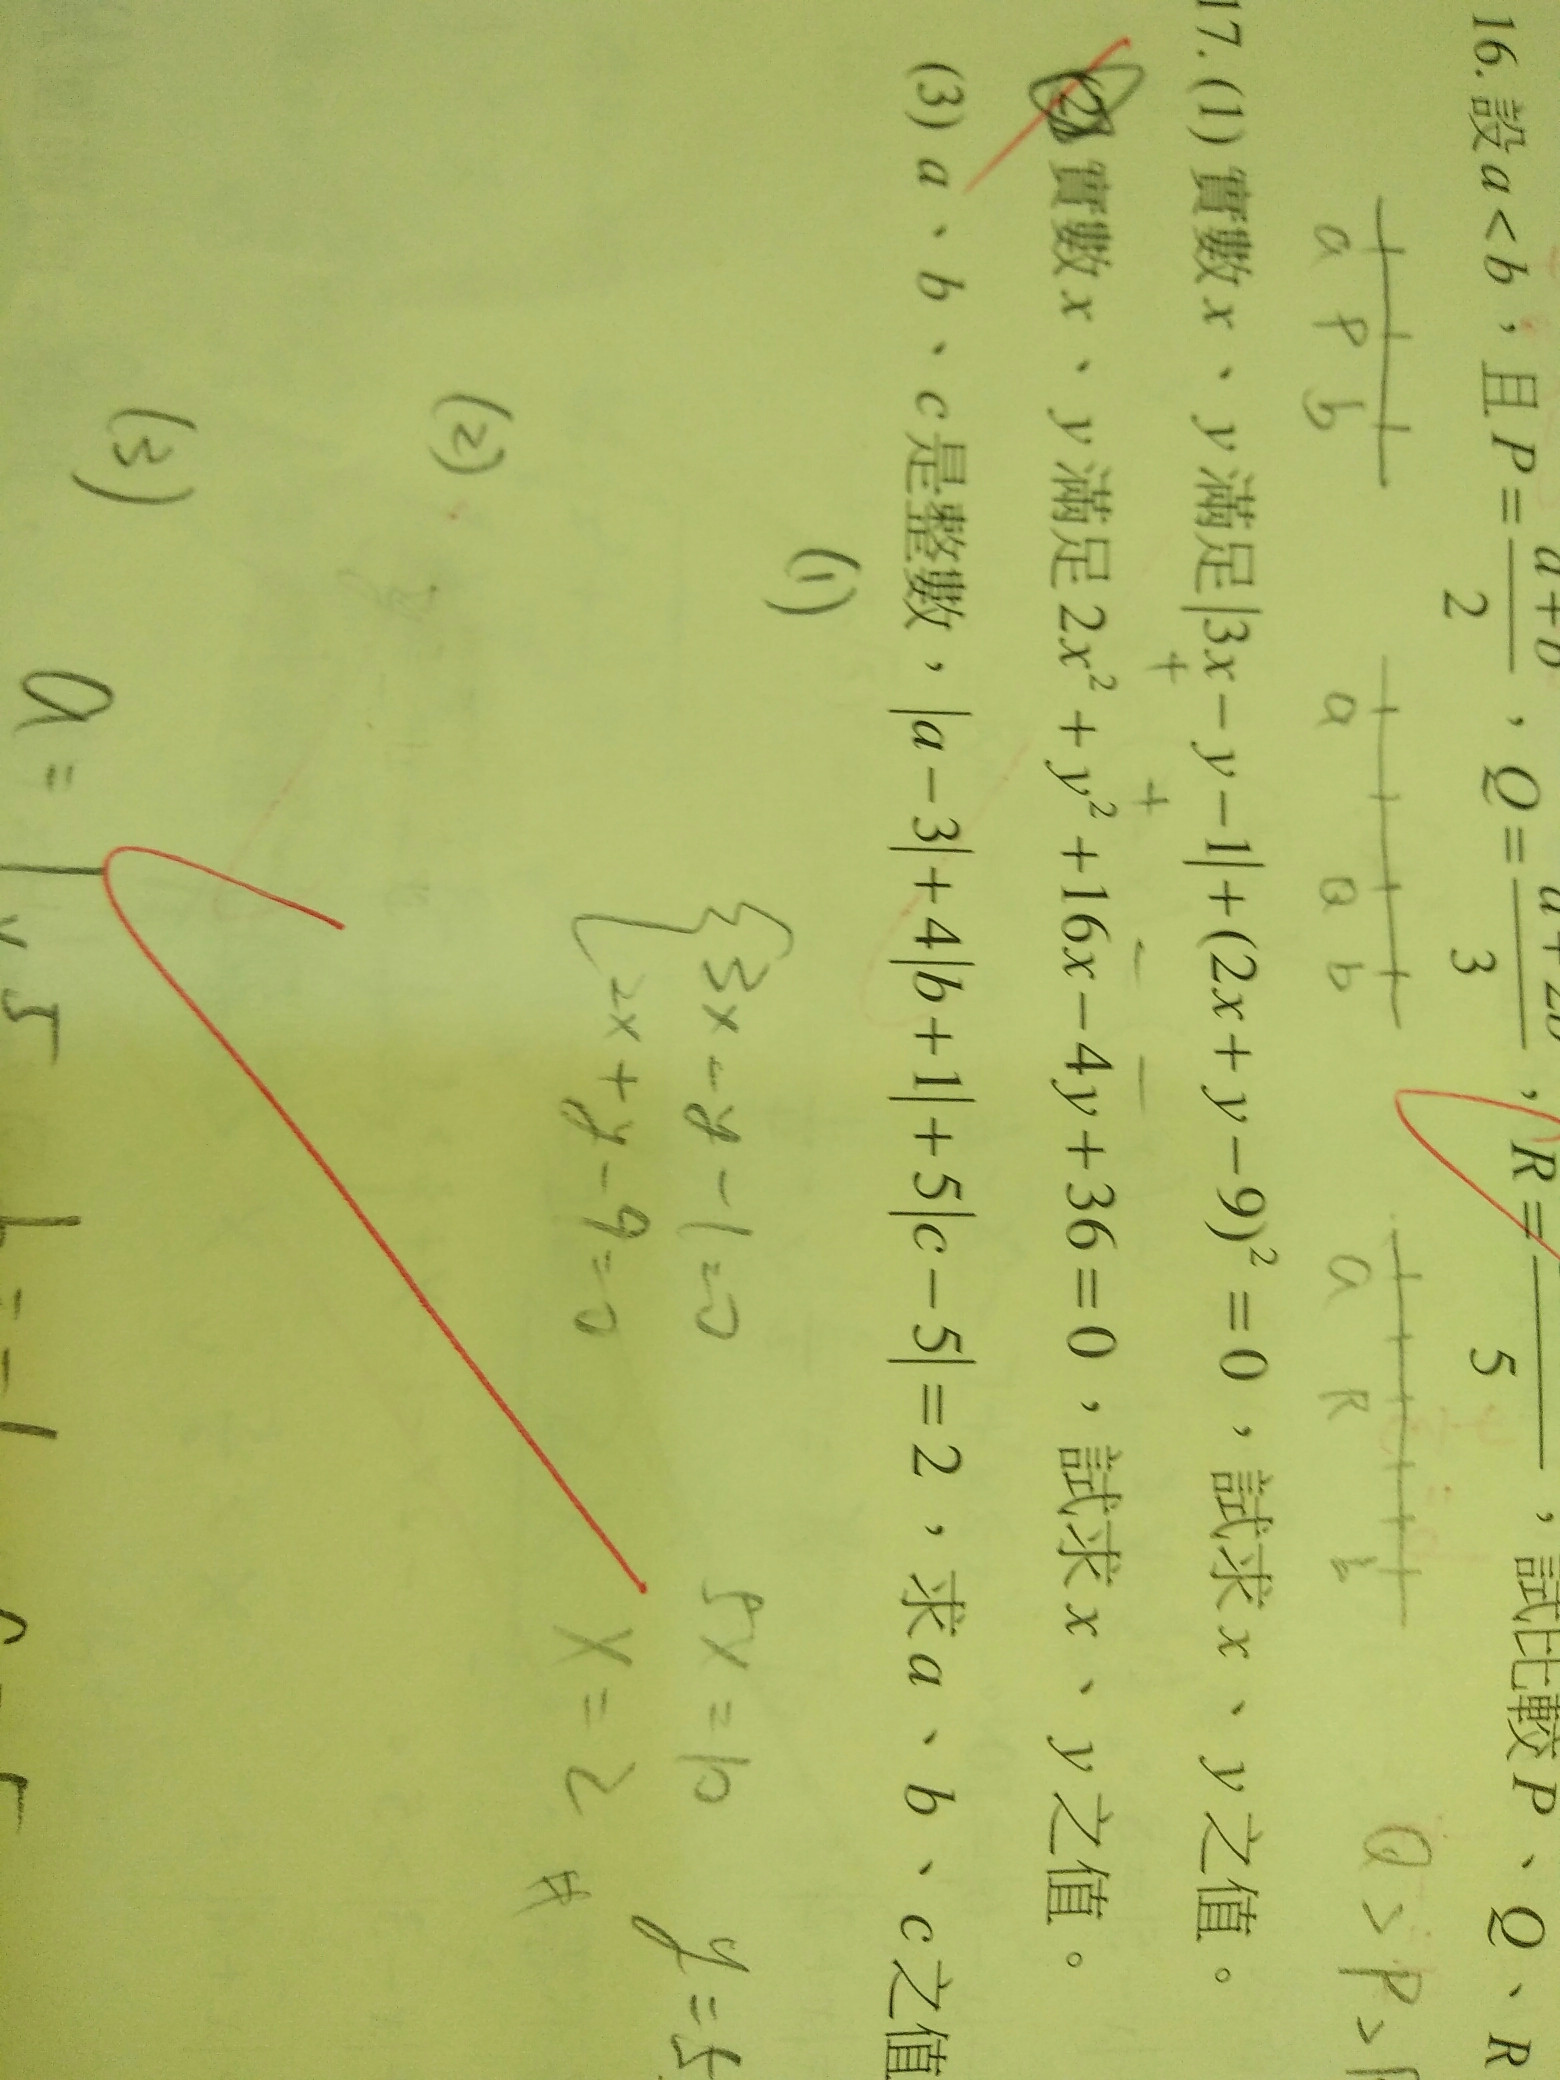 16. 設 a < b，且 P = (a+b)/2，Q = (a+2b)/3，R = /5，試比較 P、Q、R
a P b
a Q b
a R b
Q > P >
17. (1) 實數 x、y 滿足 |3x − y − 1| + (2x + y − 9)² = 0，試求 x、y 之值。
(2) 實數 x、y 滿足 2x² + y² + 16x − 4y + 36 = 0，試求 x、y 之值。
(3) a、b、c 是整數，|a − 3| + 4|b + 1| + 5|c − 5| = 2，求 a、b、c 之值
(1)
3x − y − 1 = 0
2x + y − 9 = 0
5x = 10
x = 2
y = 5
#
(2)
(3)
a = 1, 5
b = −1